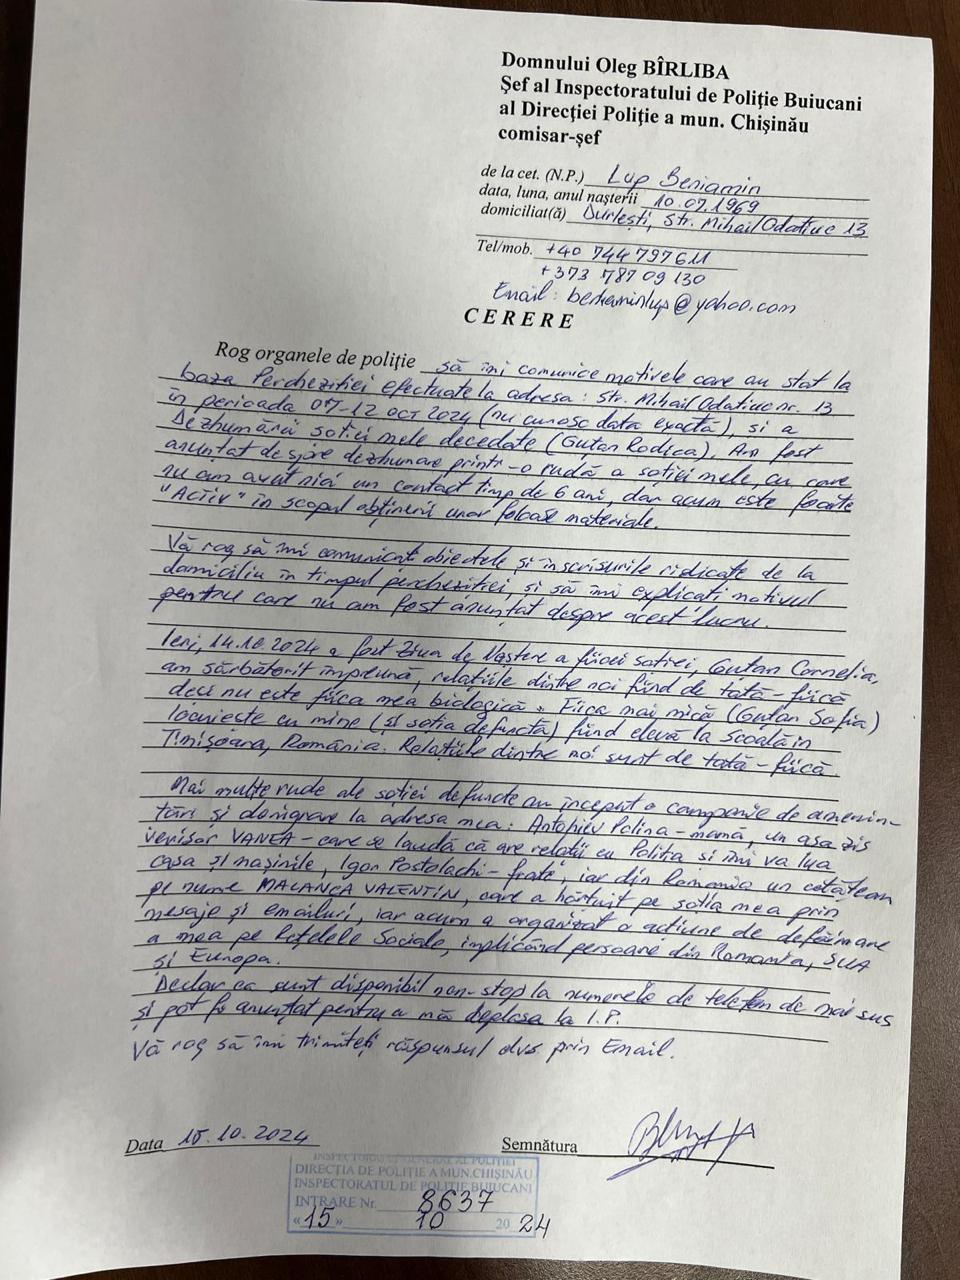 Domnului Oleg BÎRLIBA
Şef al Inspectoratului de Poliţie Buiucani
al Direcţiei Poliţie a mun. Chişinău
comisar-şef
de la cet. (N.P.) Lup Beniamin
data, luna, anul naşterii 10.07.1969
domiciliat(ă) Durlești, str. Mihail Odatiuc 13
Tel/mob. +40 744 797611
+373 787 09 130
Email: beniaminlup@yahoo.com
CERERE
Rog organele de poliţie să îmi comunice motivele care au stat la
baza Perchezitiei efectuate la adresa: str. Mihail Odatiuc nr. 13
în perioada 07-12 oct 2024 (nu cunosc data exactă), si a
Dezhumării sotiei mele decedate (Guțan Rodica). Am fost
anuntat despre dezhumare printr-o rudă a sotiei mele, cu care
nu am avut nici un contact timp de 6 ani, dar acum este foarte
"Activ" în scopul obținerii unor foloase materiale.
Vă rog să îmi comunicați obiectele și înscrisurile ridicate de la
domiciliu în timpul perchezitiei, si să îmi explicati motivul
pentru care nu am fost anunțat despre acest lucru.
Ieri, 14.10.2024 a fost Ziua de Naștere a fiicei sotiei, Guțan Cornelia,
am sărbătorit împreună, relațiile dintre noi fiind de tată-fiică
deci nu este fiica mea biologică. Fiica mai mică (Guțan Sofia)
locuieste cu mine (și soția defunctă) fiind elevă la Școală în
Timișoara, România. Relatiile dintre noi sunt de tată-fiică.
Mai multe rude ale soției defuncte au început o campanie de amenin-
tări și denigrare la adresa mea: Antohiev Polina - mamă, un așa zis
verișor VANEA - care se laudă că are relații cu Politia si îmi va lua
casa și mașinile, Igor Postolachi - frate, iar din Romania un cetățean
pe nume MALANCA VALENTIN, care a hărțuit pe sotia mea prin
mesaje și emailuri, iar acum a organizat o actiune de defăimare
a mea pe Rețelele Sociale, implicând persoane din Romania, SUA
și Europa.
Declar ca sunt disponibil non-stop la numerele de telefon de mai sus
și pot fi anunțat pentru a mă deplasa la I.P.
Vă rog să îmi trimiteți răspunsul dvs prin Email.
Data 15.10.2024 Semnătura
INSPECTORATUL GENERAL AL POLIŢIEI
DIRECŢIA DE POLIŢIE A MUN.CHIŞINĂU
INSPECTORATUL DE POLIŢIE BUIUCANI
INTRARE Nr. 8637
«15» 10 20 24